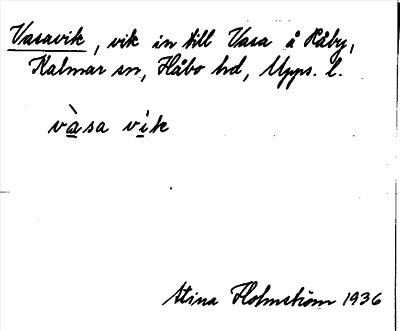 Vasavik, vik in till Vasa å Råby,
Kalmar sn, Håbo hd, Upps. l.
vàsa vik
Stina Holmström 1936